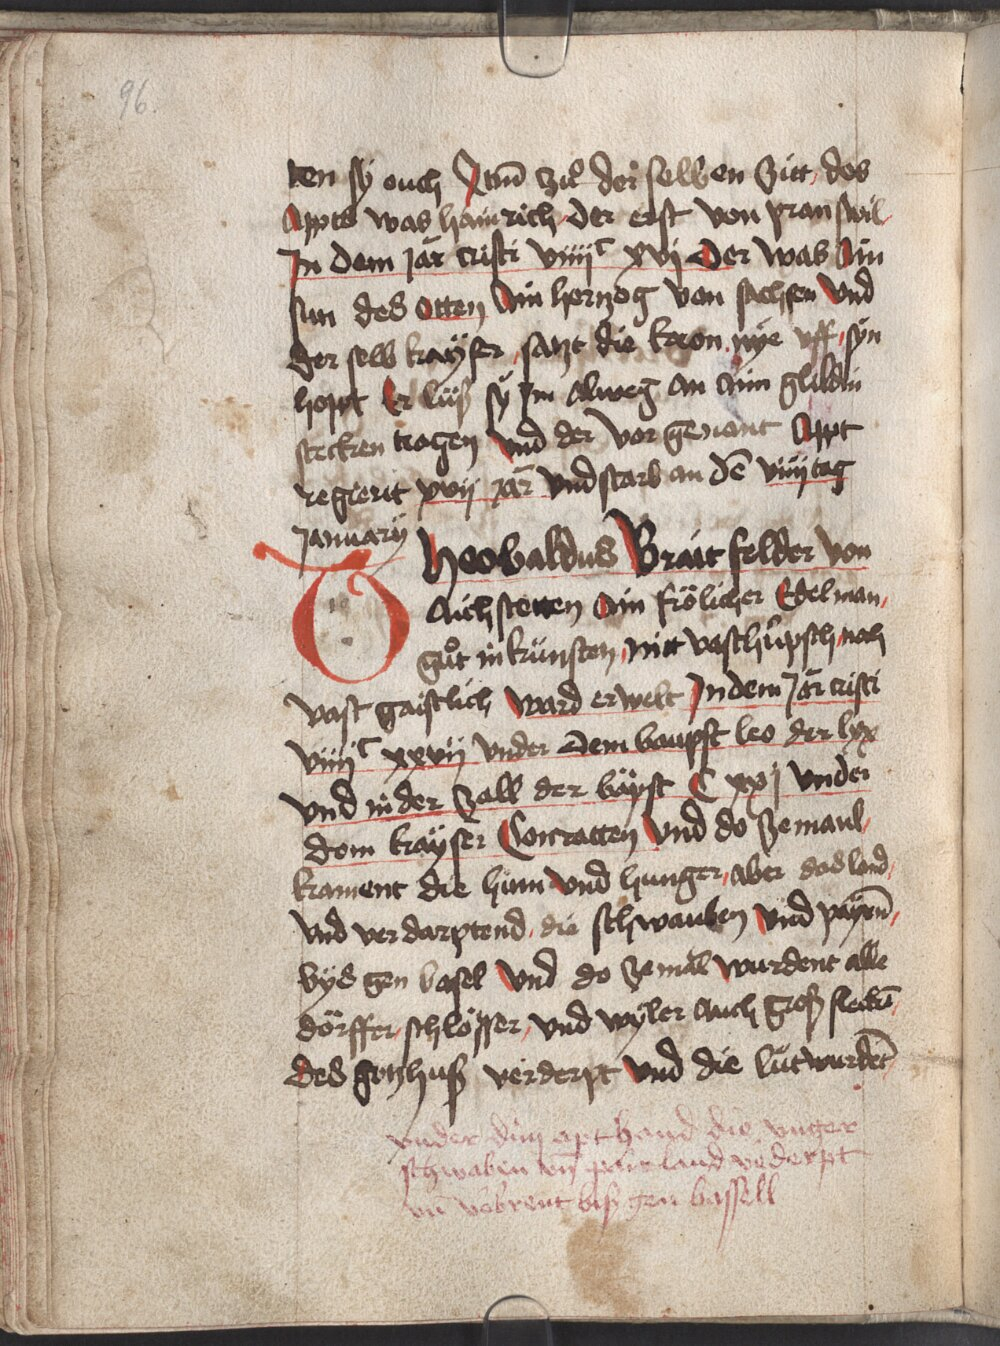 96.
ten sÿ ouch Itm̄ zů der selben zitt des
Appts was hainrich der erst von pranswil
In dem Jar cristi viiijᶜ xvj Der was Ain
sun des otten Ain hertzog von sachsen Vnd
der selb kaÿser satzt die kron nÿe vff sÿn
hopt Er lüß sÿ Im alweg an Aim gildin
stecken tragen Vnd der vor genant Appt
regierit xvij jar Vnd starb an dē viiij tag
January
Theobaldus Brait felder von
Aichstetten Ain frölicher Edelman
gůt in künsten mitt vast hüpsch nach
vast gaistlich Ward erwelt In dem Jar cristi
viiijᶜ xxvij vnder dem baupst leo der lxx
Vnd in der Zall der bäpst C xxj vnder
dem kaÿser Conratten Vnd do ze maul
krament die hüni Vnd hunger aber das land
Vnd verdarptend die schwauben Vnd paÿern̄
bÿs gen basel Vnd do ze mal wurdent alle
dörffer schlösser vnd wÿler Auch groß fleckē
Des gotzhuß verderpt Vnd die lüt wurdēt
vnder dim apt hand die vnger
schwaben vn̄ paierland v̄derpt
vn̄ v̄brent biß gen bassell